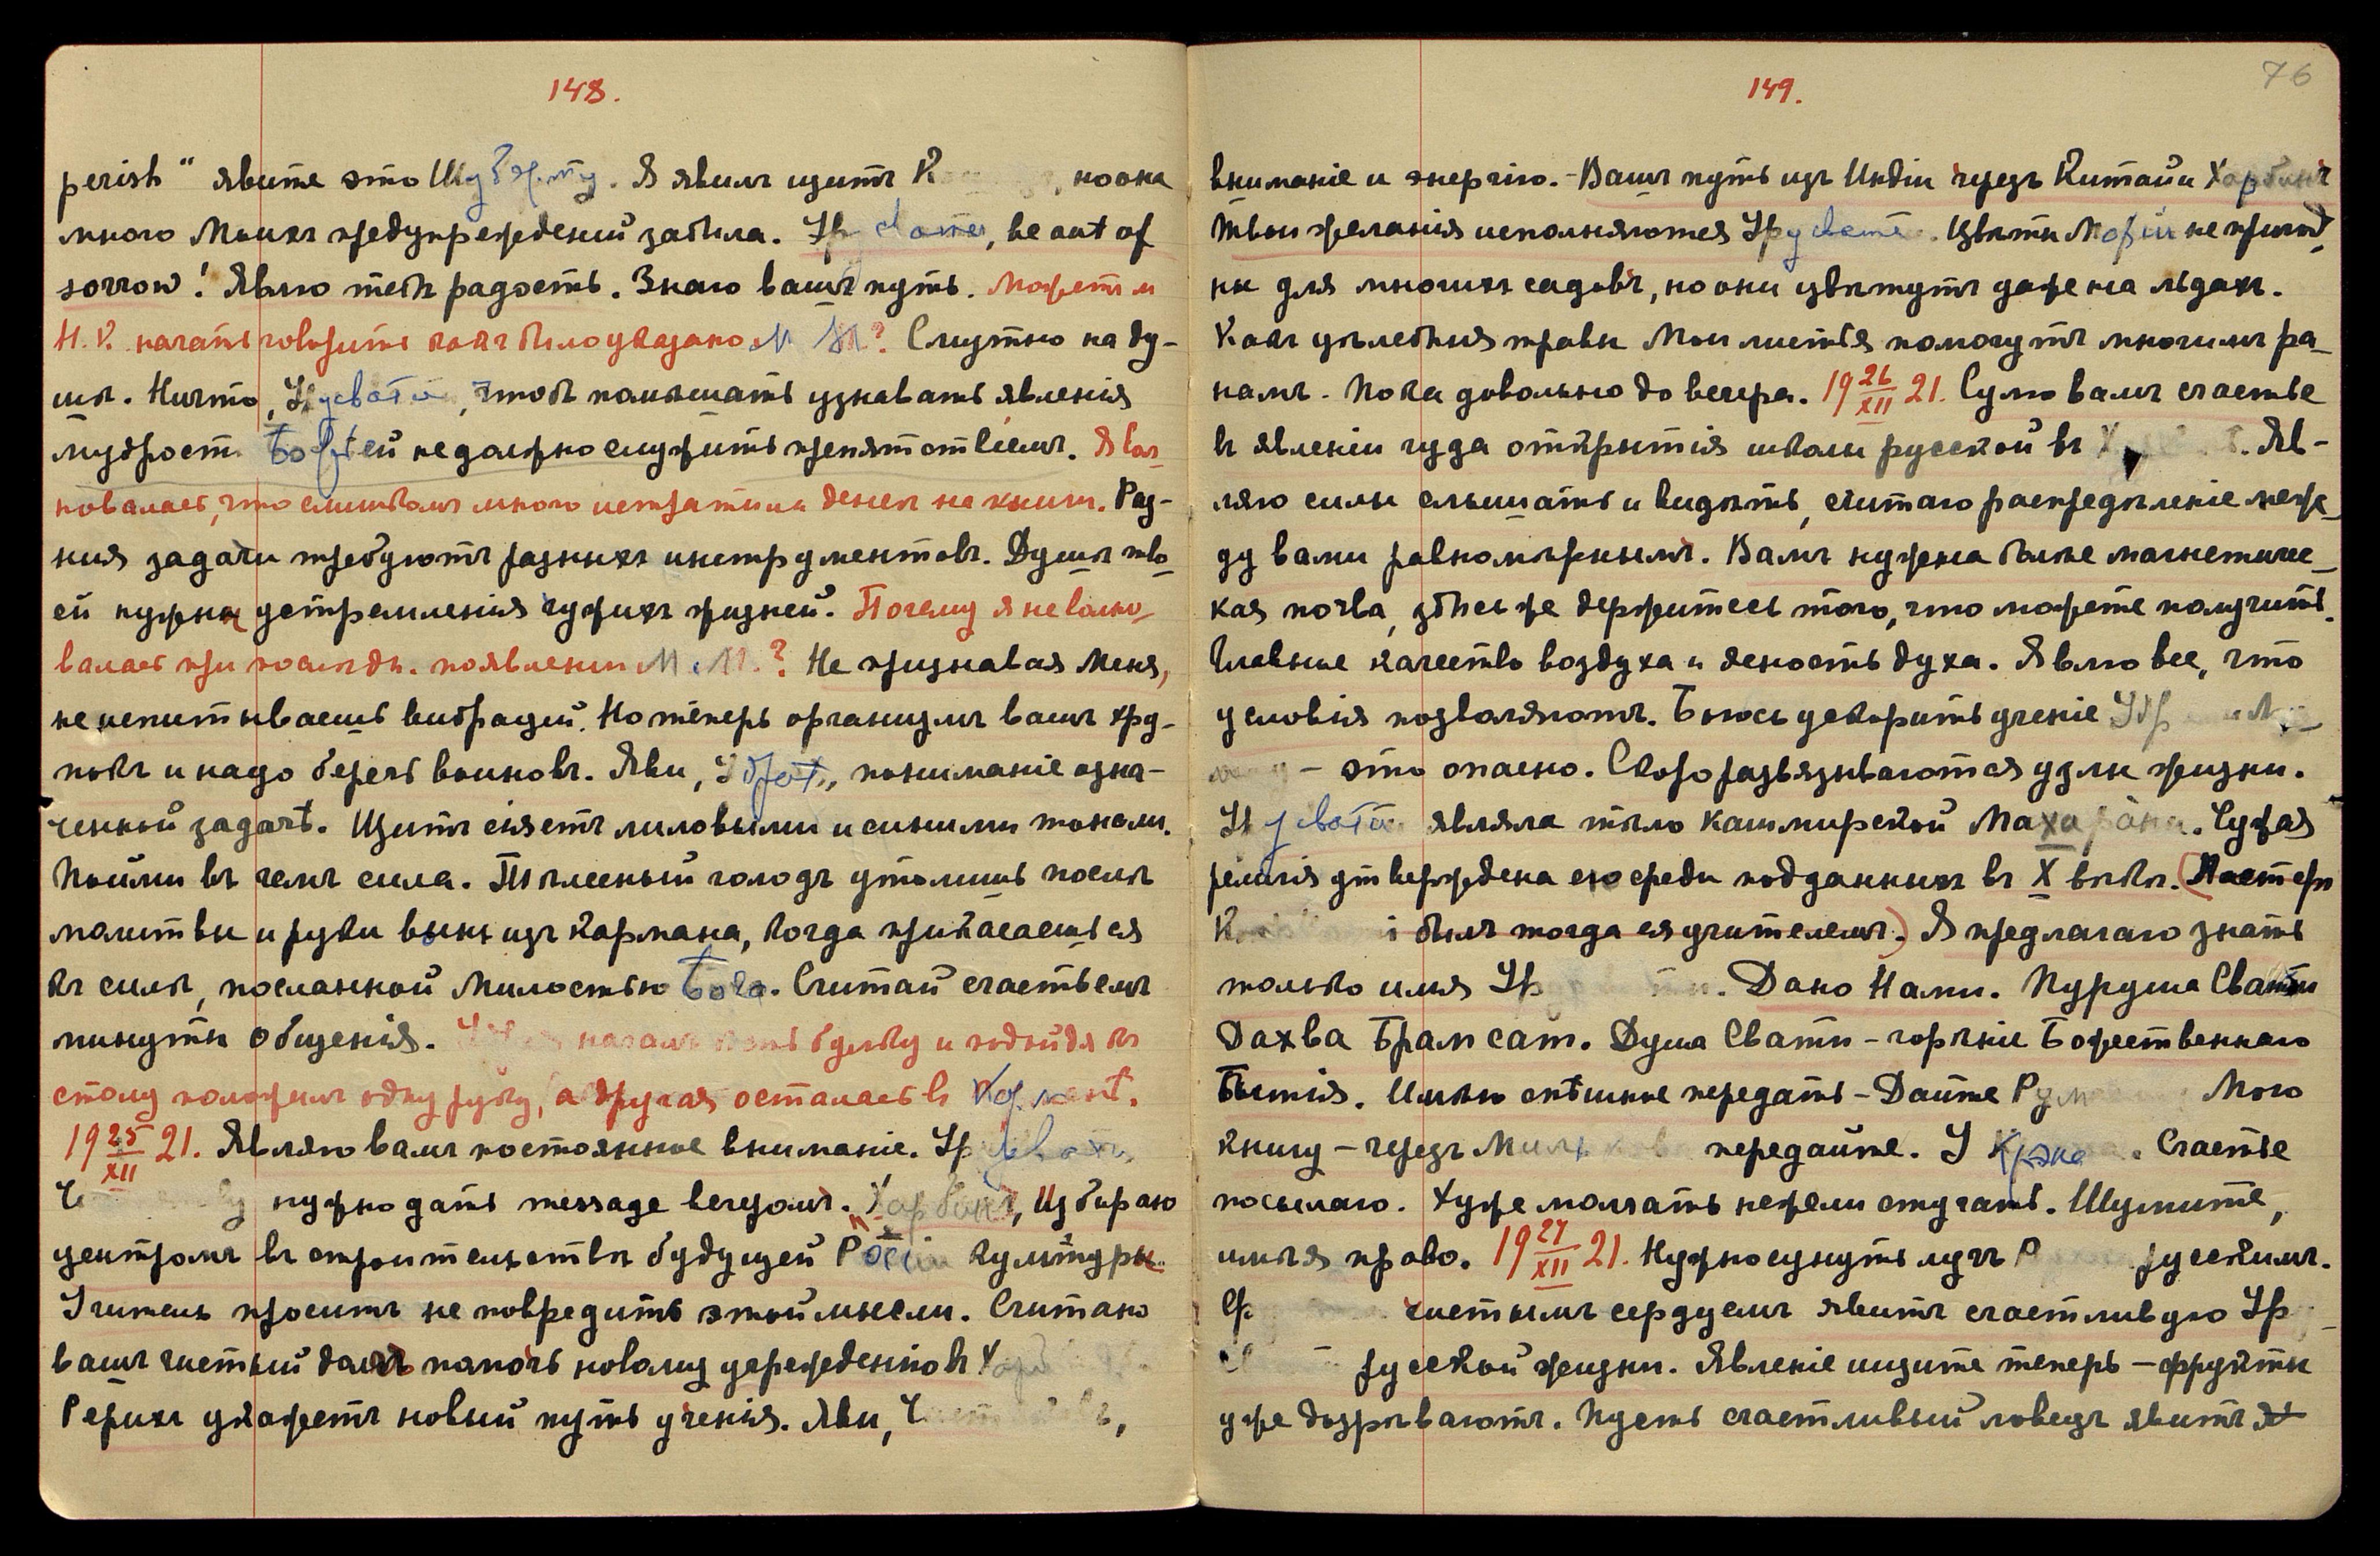 148.
perish" явите это Шуберту. Я явилъ щитъ К , но она
много Моихъ предупрежденій забыла. Урусвати, be out of
sorrow! Явлю тебѣ радость. Знаю вашъ путь. Можетъ ли
Н.К. начать говорить какъ было указано М. М.? Смутно на ду-
шѣ. Ничто, Урусвати, чтобъ помѣшать узнавать явленія
мудрости Божьей не должно служить препятствіемъ. Я вол-
новалась, что слишкомъ много истратили денегъ на книги. Раз-
ныя задачи требуютъ разныхъ инструментовъ. Душѣ тво-
ей нужны устремленія чужихъ жизней. Почему я не волно-
валась при послѣдн. появленіи М. М.? Не признавая Меня,
не испытываешь вибрацій. Но теперь организмъ вашъ хру-
покъ и надо беречь воиновъ. Яви, Удрая, пониманіе озна-
ченной задачѣ. Щитъ сіяетъ лиловыми и синими тонами.
Пойми въ чемъ сила. Тѣлесный голодъ утолишь послѣ
молитвы и руки вынь изъ кармана, когда прикасаешься
къ силѣ, посланной Милостью Бога. Считай счастьемъ
минуты общенія. началъ ѣсть булку и подойдя къ
столу положилъ одну руку, а другая осталась въ карманѣ.
19 25/XII 21. Являю вамъ постоянное вниманіе. Урусвати,
нужно дать message вечеромъ. Харбинъ, Избираю
центромъ въ строительствѣ будущей Россіи культуры.
Учитель проситъ не повредить этой мысли. Считаю
вашъ чистый долгъ помочь новому учрежденію въ Хар
Рерихъ укажетъ новый путь ученія. Яви, ,
149.
76
вниманіе и энергію. - Вашъ путь изъ Индіи черезъ Китай и Харбинъ
Твои желанія исполняются Урусвати. Цвѣты Моріи не пригод-
ны для многихъ садовъ, но они цвѣтутъ даже на льдахъ.
Какъ цѣлебныя травы Мои листья помогутъ многимъ ра-
намъ. Пока довольно до вечера. 19 26/XII 21. Сулю вамъ счастье
въ явленіи чуда открытія школы русской въ Х . Яв-
ляю силы слышать и видѣть, считаю распредѣленіе меж-
ду вами равномѣрнымъ. Вамъ нужна болѣе магнетичес-
кая почва, здѣсь же держитесь того, что можете получить.
Главное качество воздуха и ясность духа. Явлю все, что
условія позволяютъ. Боюсь ускорить ученіе Удр
- это опасно. Скоро развязываются узлы жизни.
Урусвати являла тѣло Кашмирской Махарани. Чужая
религія утверждена ею среди подданныхъ въ X вѣкѣ. (Мастеръ
К і былъ тогда ея учителемъ.) Я предлагаю знать
только имя Ур . Дано Нами. Пуруша Свати
Дахва Брам сат. Душа Свати - горѣніе Божественнаго
Бытія. Имѣю спѣшное передать - Дайте Рум Мою
книгу - черезъ передайте. У Крэна . Счастье
посылаю. Хуже молчать нежели стучать. Шумите,
имѣя право. 19 27/XII 21. Нужно сунуть лучъ Р русскимъ.
чистымъ сердцемъ явитъ счастливую Ур
русской жизни. Явленіе ищите теперь - фрукты
уже дозрѣваютъ. Пусть счастливый ловецъ явитъ